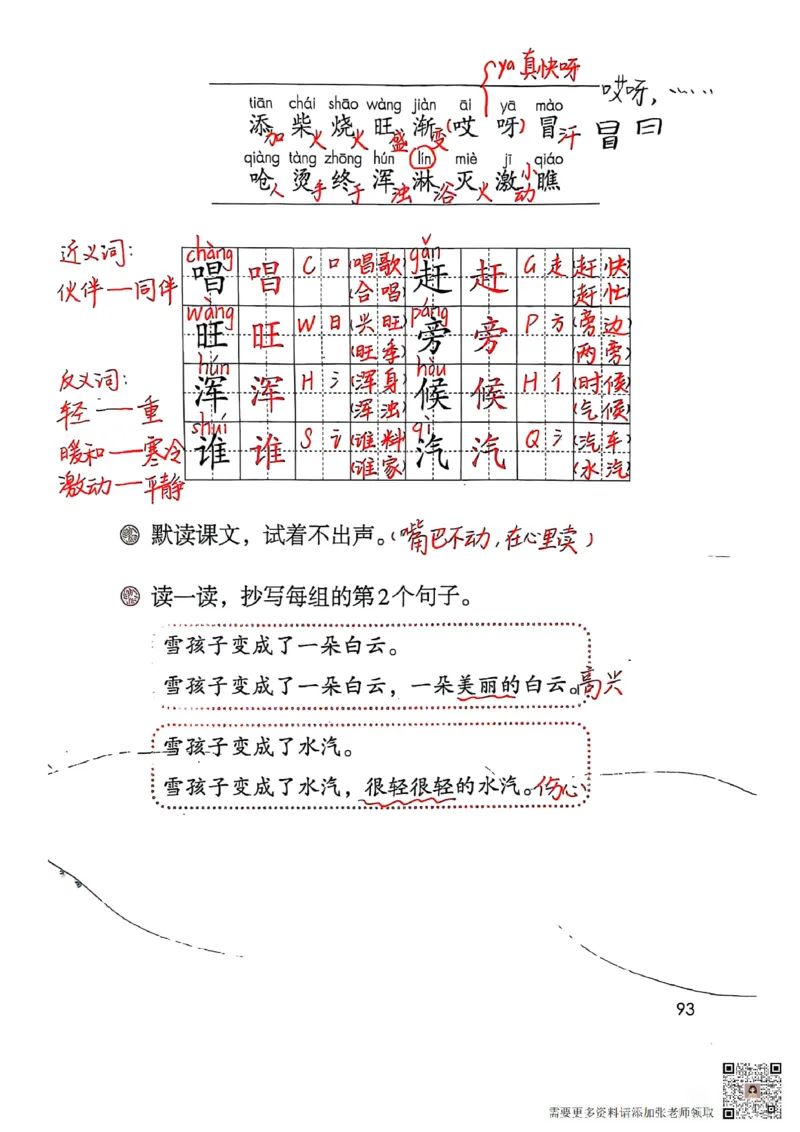 ya 真快呀
哎呀，……
tiān chái shāo wàng jiàn āi yā mào
添加 柴火 烧火 旺盛 渐变 (哎 呀) 冒汗 冒 曰
qiàng tàng zhōng hún lín miè jī qiáo
呛人 烫手 终于 浑浊 淋浴 灭火 激动 小瞧
近义词：
伙伴—同伴
反义词：
轻—重
暖和—寒冷
激动—平静
chàng 唱 唱 C 口 (唱歌) (合唱) gǎn 赶 赶 G 走 (赶快) (赶忙)
wàng 旺 旺 W 日 (兴旺) (旺季) páng 旁 旁 P 方 (旁边) (两旁)
hún 浑 浑 H 氵 (浑身) (浑浊) hòu 候 候 H 亻 (时候) (气候)
shuí 谁 谁 S 讠 (谁料) (谁家) qì 汽 汽 Q 氵 (汽车) (水汽)
默读课文，试着不出声。(嘴巴不动，在心里读)
读一读，抄写每组的第2个句子。
雪孩子变成了一朵白云。
雪孩子变成了一朵白云，一朵美丽的白云。高兴
雪孩子变成了水汽。
雪孩子变成了水汽，很轻很轻的水汽。伤心
93
需要更多资料请添加张老师领取